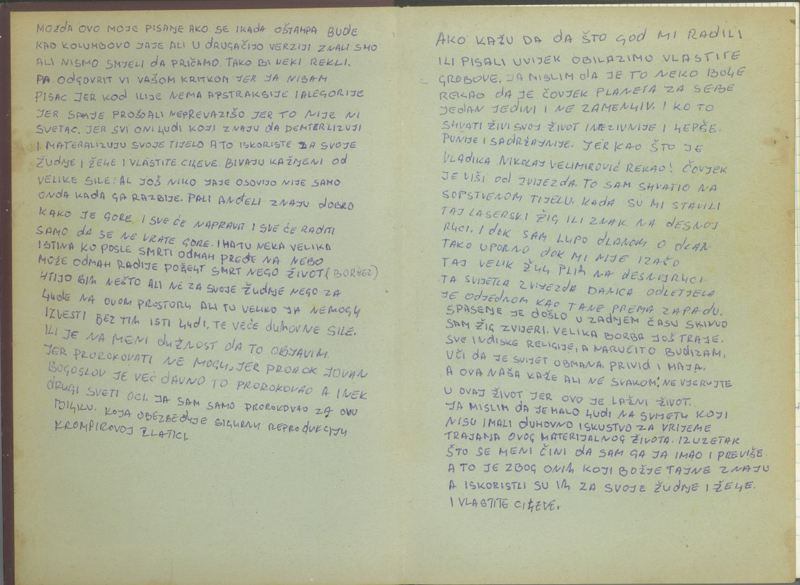 MOŽDA OVO MOJE PISANJE AKO SE IKADA OŠTAMPA BUDE
KAO KOLUMBOVO JAJE ALI U DRUGAČIJO VERZIJI ZNALI SMO
ALI NISMO SMJELI DA PRIČAMO. TAKO BI NEKI REKLI.
PA ODGOVRIT VI VAŠOM KRITKOM JER JA NISAM
PISAC JER KOD ILIJE NEMA APSTRAKSIJE I ALEGORIJE
JER SANJE PROŠOALI NEPREVAZIŠO JER TO NIJE NI
SVETAC. JER SVI ONI LJUDI KOJI ZNAJU DA DEMTERLIZUJU
I MATERALIZUJU SVOJE TIJELO A TO ISKORISTE ZA SVOJE
ŽUDNJE I ŽELJE I VLASTITE CILJEVE. BIVAJU KAŽNJENI OD
VELIKE SILE: AL JOŠ NIKO JAJE OSOVIJO NIJE SAMO
ONDA KADA GA RAZBIJE. PALI ANĐELI ZNAJU DOBRO
KAKO JE GORE. I SVE ĆE NAPRAVIT I SVE ĆE RADITI
SAMO DA SE NE VRATE GORE. IMATU NEKA VELIKA
ISTINA KO POSLE SMRTI ODMAH PREĐE NA NEBO
MOŽE ODMAH RADIJE POBEĆI SMRT NEGO ŽIVOT (BORHEZ)
HTIJO BIH NEŠTO ALI NE ZA SVOJE ŽUDNJE NEGO ZA
LJUDE NA OVOM PROSTORU ALI TU VELIKO JA NEMOGU
IZVESTI BEZ TIH ISTI LJUDI. TE VEĆE DUHOVNE SILE.
ILI JE NA MENI DUŽNOST DA TO OBJAVIM.
JER PROROKOVATI NE MOGU, JER PROROK JOVAN
BOGOSLOV JE VEĆ DAVNO TO PROROKOVAO A I NEK
DRUGI SVETI OCI. JA SAM SAMO PROROKOVAO ZA OVU
BILJKU. KOJA OBEZBEDUJE SIGURNU REPRODUKCIJU
KROMPIROVOJ ZLATICI.
AKO KAŽU DA DA ŠTO GOD MI RADILI
ILI PISALI UVIJEK OBILAZIMO VLASTITE
GROBOVE. JA MISLIM DA JE TO NEKO BOLJE
REKAO DA JE ČOVJEK PLANETA ZA SEBE
JEDAN JEDINI I NE ZAMENLJIV. I KO TO
SHVATI ŽIVI SVOJ ŽIVOT INTEZIVNIJE I LEPŠE.
PUNIJE I SADRŽAJNIJE. JER KAO ŠTO JE
VLADIKA NIKOLAJ VELIMIROVIĆ REKAO! ČOVJEK
JE VIŠI OD ZVIJEZDA. TO SAM SHVATIO NA
SOPSTVENOM TIJELU. KADA SU MI STAVILI
TAJ LASERSKI ŽIG ILI ZNAK NA DESNOJ
RUCI. I DOK SAM LUPO DLANOM O DLAN
TAKO UPORNO DOK MI NIJE IZAŠO
TAJ VELIK ŽULJ PLIH NA DESNIJRUCI
TA SVIJETLA ZVIJEZDA DANICA ODLETJELA
JE ODJEDNOM KAO TANE PREMA ZAPADU.
SPASENJE JE DOŠLO U ZADNJEM ČASU SKINUO
SAM ŽIG ZVIJERI. VELIKA BORBA JOŠ TRAJE.
SVE INDISKE RELIGIJE, A NARUČITO BUDIZAM,
UČI DA JE SVIJET OBMANA, PRIVID I MAJA.
A OVA NAŠA KAŽE ALI NE SVAKOM, NE VJERUJTE
U OVAJ ŽIVOT JER OVO JE LAŽNI ŽIVOT.
JA MISLIM DA JE MALO LJUDI NA SVIJETU KOJI
NISU IMALI DUHOVNO ISKUSTVO ZA VRIJEME
TRAJANJA OVOG MATERIJALNOG ŽIVOTA. IZUZETAK
ŠTO SE MENI ČINI DA SAM GA JA IMAO I PREVIŠE
A TO JE ZBOG ONIH KOJI BOŽIJE TAJNE ZNAJU
A ISKORISTILI SU IH ZA SVOJE ŽUDNJE I ŽELJE.
I VLASTITE CILJEVE.